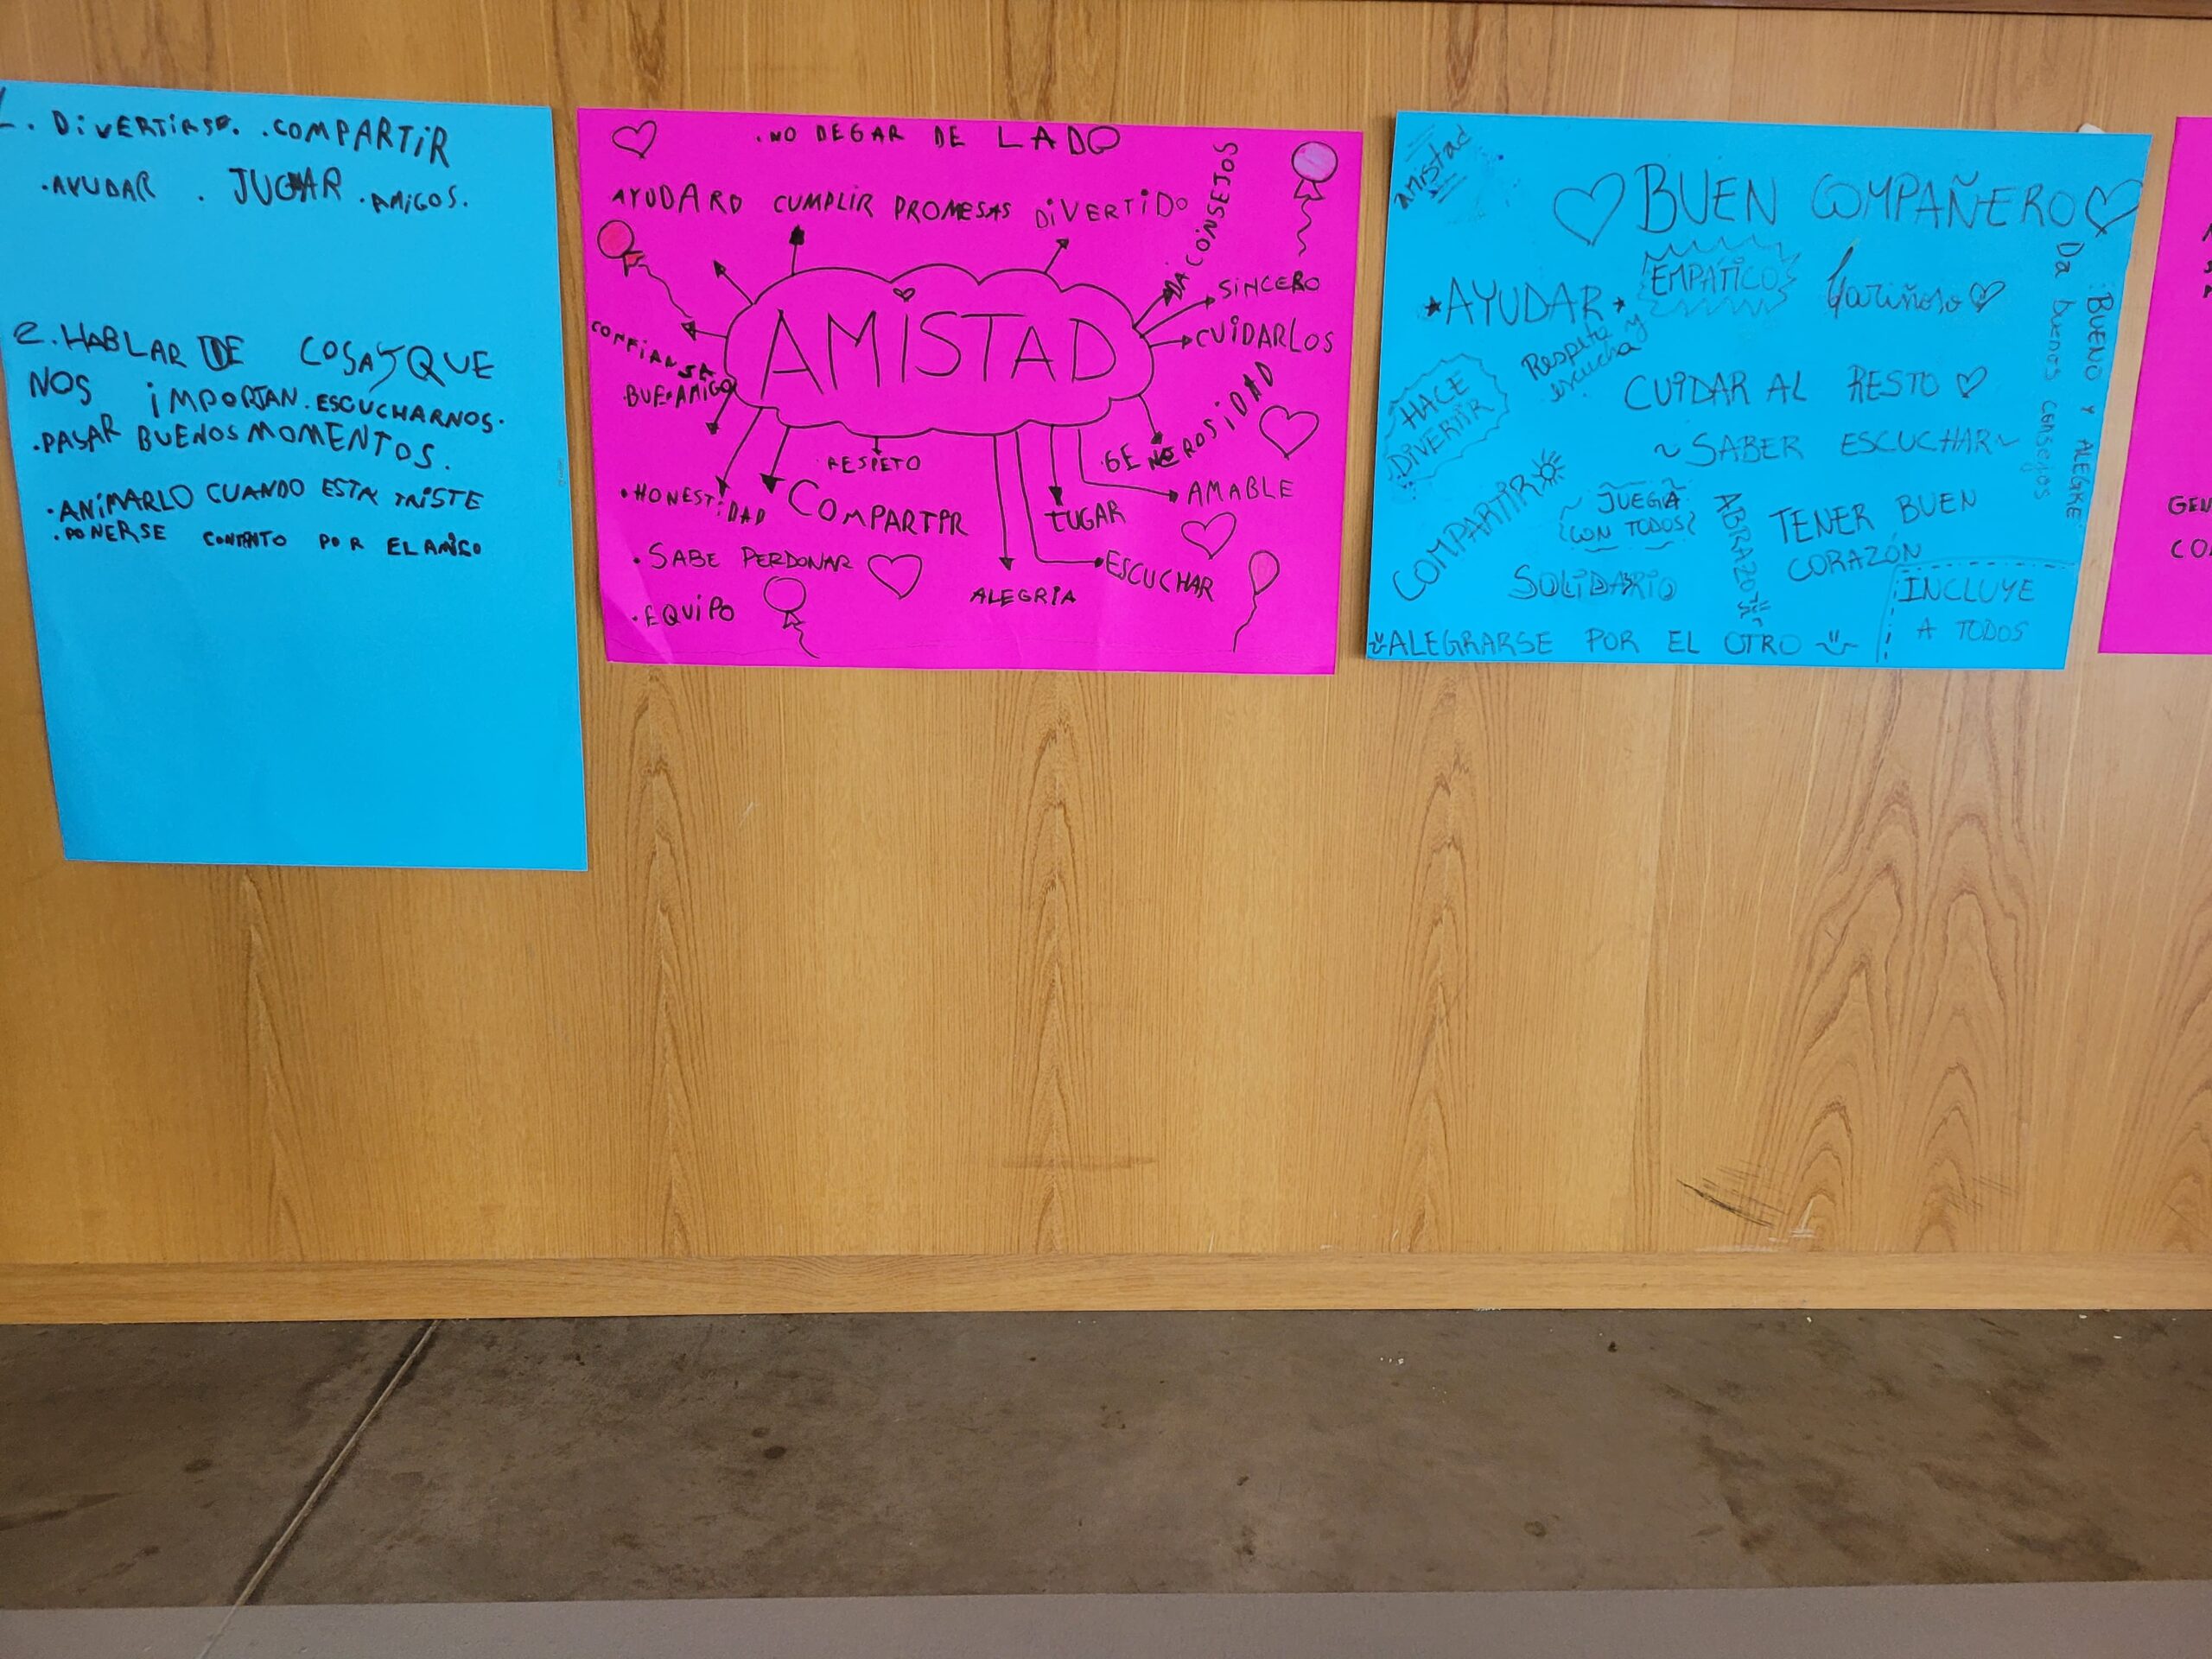 1. DIVERTIRSE. .COMPARTIR
.AYUDAR . JUGAR .AMIGOS.
2. HABLAR DE COSAS QUE
NOS IMPORTAN. ESCUCHARNOS.
.PASAR BUENOS MOMENTOS.
.ANIMARLO CUANDO ESTA TRISTE
.PONERSE CONTNTO POR EL AMIGO
.NO DEGAR DE LADO
AYUDARO CUMPLIR PROMESAS DIVERTIDO
DA CONSEJOS
SINCERO
CUIDARLOS
AMISTAD
CONFIANSA
BUE.AMIGO
.GENEROSIDAD
RESPETO
AMABLE
.HONESTIDAD
COMPARTIR
JUGAR
.SABE PERDONAR
ESCUCHAR
ALEGRIA
.EQUIPO
Amistad
BUEN COMPAÑERO
EMPÁTICO
Cariñoso
AYUDAR
Respeta y
escucha
Da buenos consejos
BUENO Y ALEGRE
HACE
DIVERTIR
CUIDAR AL RESTO
~SABER ESCUCHAR~
COMPARTIR
JUEGA
CON TODOS
ABRAZO
TENER BUEN
CORAZÓN
SOLIDARIO
INCLUYE
A TODOS
ALEGRARSE POR EL OTRO